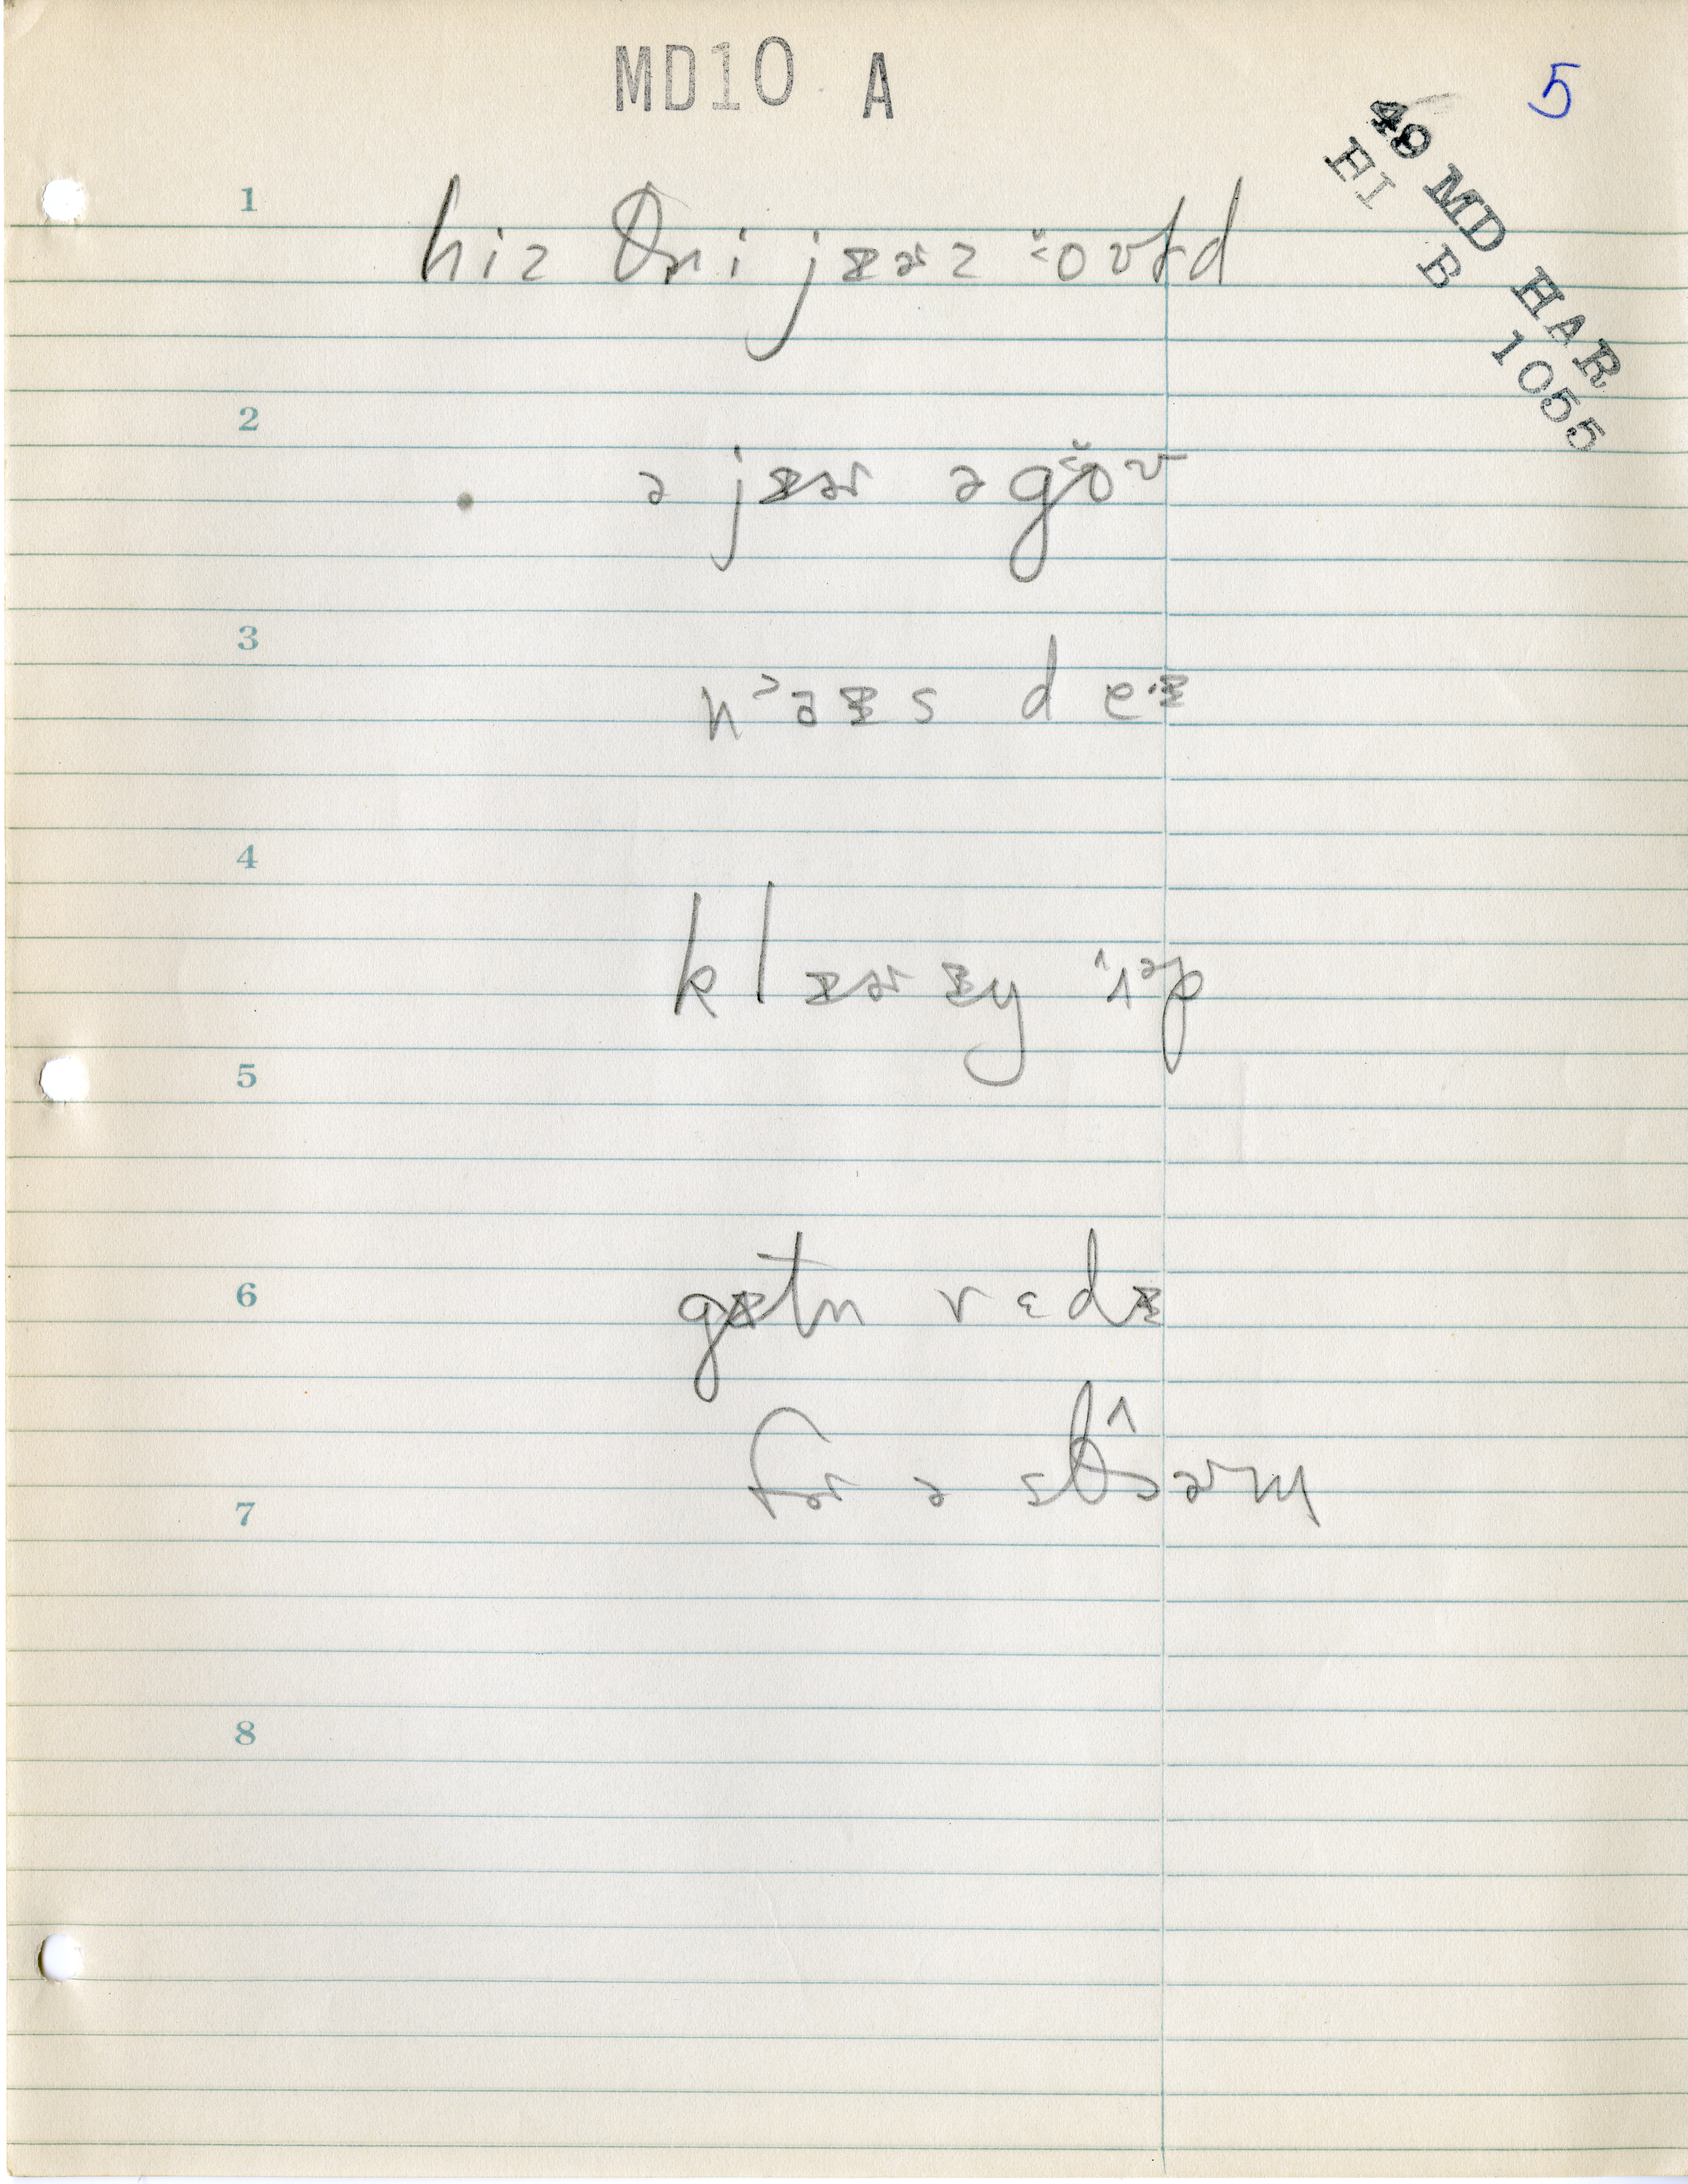 MD10 A
5
49 MD HAR
EI B 1055
1 hiz θri jɪɚz oʊɫd
2 ə jɪɚ əgoʊ
3 nˀəɪs deɪ
4 klɪɚɪŋ ʌᵊp
5
6 gɪtn rɛdɪ
fɚ ə stɔɚm
7
8